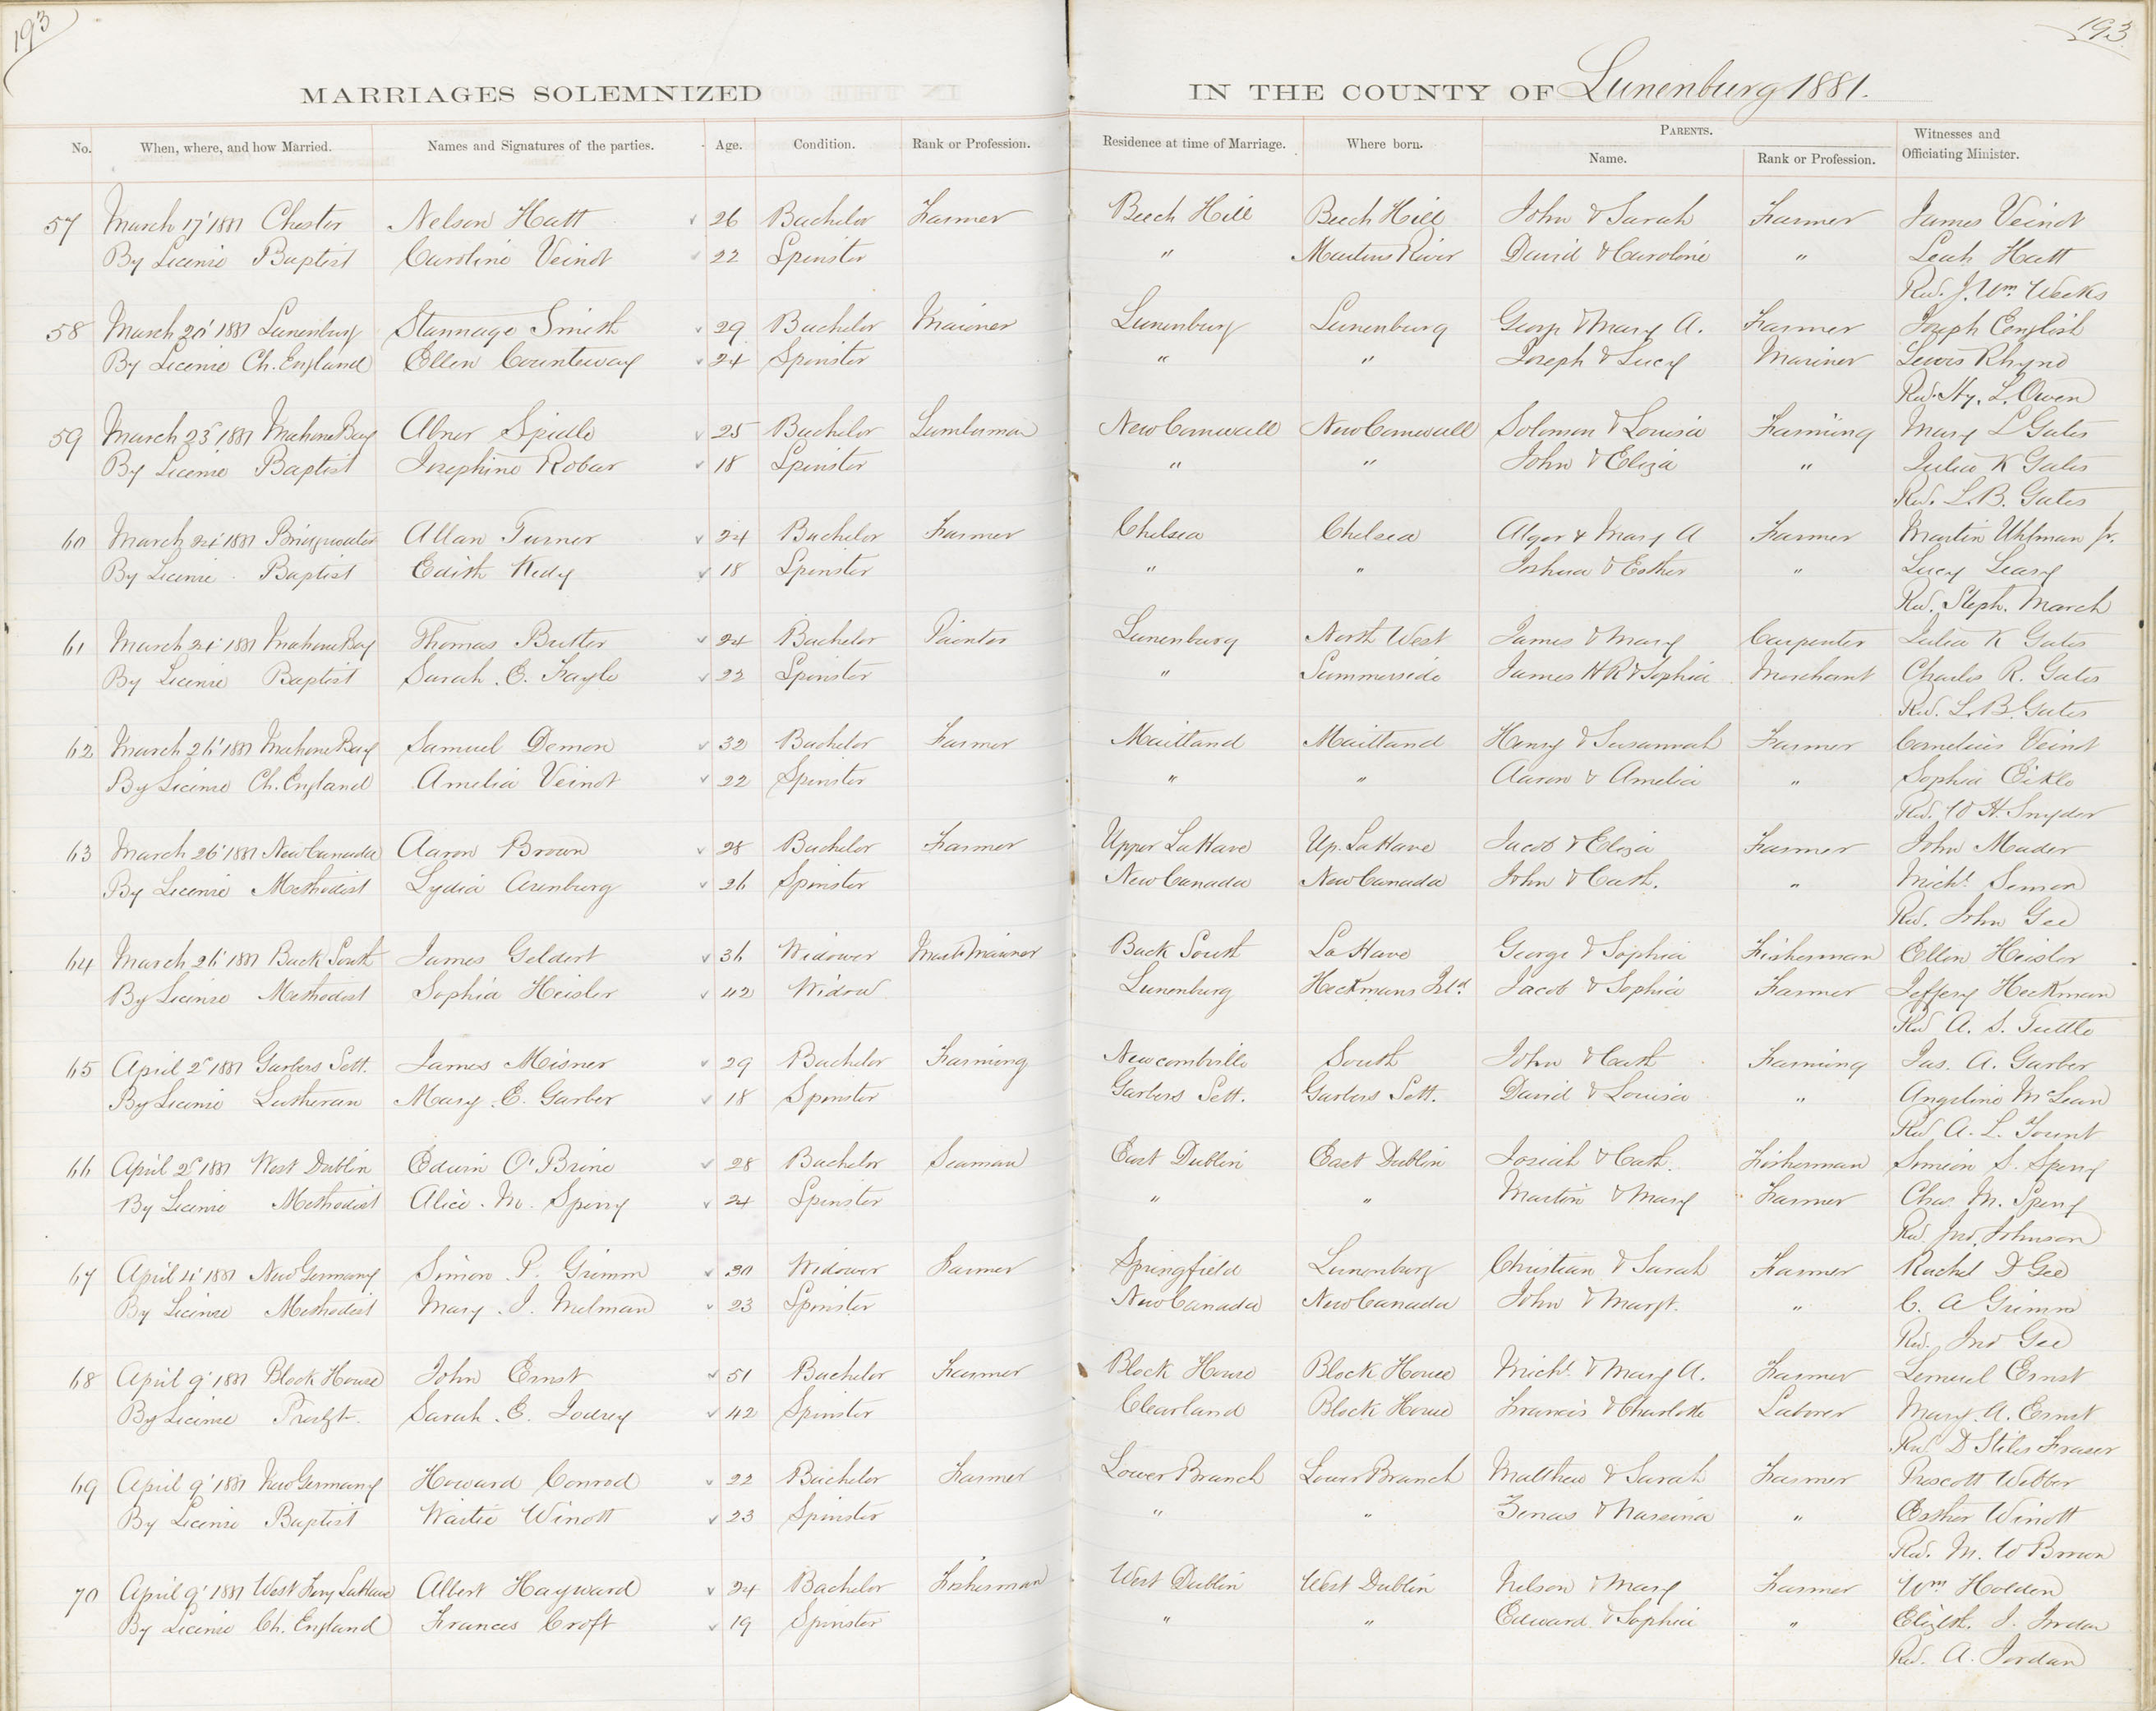 193
193
MARRIAGES SOLEMNIZED IN THE COUNTY OF Lunenburg 1881.
No. When, where, and how Married. Names and Signatures of the parties. Age. Condition. Rank or Profession. Residence at time of Marriage. Where born. PARENTS. Name. Rank or Profession. Witnesses and Officiating Minister.
57 March 17' 1881 Chester Nelson Hatt 26 Bachelor Farmer Beech Hill Beech Hill John & Sarah Farmer James Veinot
By License Baptist Caroline Veinot 22 Spinster " Martins River David & Caroline " Leah Hatt
Rev. J. Wm. Weeks
58 March 20' 1881 Lunenburg Stannage Smith 29 Bachelor Mariner Lunenburg Lunenburg George & Mary A. Farmer Joseph English
By License Ch. England Ellen Counteway 24 Spinster " " Joseph & Lucy Mariner Lewis Rhyno
Rev. Hy. L. Owen
59 March 23' 1881 Mahone Bay Abner Spidle 25 Bachelor Lumberman New Cornwall New Cornwall Solomon & Louisa Farming Mary L Gates
By License Baptist Josephine Robar 18 Spinster " " John & Eliza " Julia K Gates
Rev. L. B. Gates
60 March 24' 1881 Bridgewater Allan Turner 24 Bachelor Farmer Chelsea Chelsea Alger & Mary A Farmer Martin Uhlman Jr.
By License Baptist Edith Kedy 18 Spinster " " Joshua & Esther " Lucy Leary
Rev. Steph. March
61 March 24' 1881 Mahone Bay Thomas Butler 24 Bachelor Painter Lunenburg North West James & Mary Carpenter Julia K Gates
By License Baptist Sarah E. Kaylo 22 Spinster " Summerside James H R & Sophia Merchant Charles R. Gates
Rev. L. B. Gates
62 March 26' 1881 Mahone Bay Samuel Demon 32 Bachelor Farmer Maitland Maitland Henry & Susannah Farmer Cornelius Veinot
By License Ch. England Amelia Veinot 22 Spinster " " Aaron & Amelia " Sophia Eikle
Rev. W H. Snyder
63 March 26' 1881 New Canada Aaron Brown 28 Bachelor Farmer Upper LaHave Up. LaHave Jacob & Eliza Farmer John Mader
By License Methodist Lydia Arenburg 26 Spinster New Canada New Canada John & Cath. " Michl.
Rev. John Gee
64 March 26' 1881 Back South James Geldert 36 Widower Mast. Mariner Back South LaHave George & Sophia Fisherman Ellen Heisler
By License Methodist Sophia Heisler 42 Widow Lunenburg Heckmans Isld. Jacob & Sophia Farmer Jeffery Heckman
Rev A. S. Tuttle
65 April 2' 1881 Garbers Sett. James Misner 29 Bachelor Farming Newcombville South John & Cath Farming Jas. A. Garber
By License Lutheran Mary E. Garber 18 Spinster Garbers Sett. Garbers Sett. David & Louisa " Angeline McLean
Rev A. L. Yount
66 April 2' 1881 West Dublin Edwin O'Brine 28 Bachelor Seaman East Dublin East Dublin Josiah & Cath. Fisherman Simeon S. Sperry
By License Methodist Alice M. Sperry 24 Spinster " " Martin & Mary Farmer Chas M. Sperry
Rev Jno. Johnson
67 April 4' 1881 New Germany Simon P. Grimm 30 Widower Farmer Springfield Lunenburg Christian & Sarah Farmer Rachel D Gee
By License Methodist Mary J. Melman 23 Spinster New Canada New Canada John & Margt. " C. A Grimm
Rev. Jno Gee
68 April 9' 1881 Block House John Ernst 51 Bachelor Farmer Block House Block House Michl. & Mary A. Farmer Lemuel Ernst
By License Presbyt. Sarah E. Joudrey 42 Spinster Clearland Block House Francis & Charlotte Laborer Mary A. Ernst
Rev D Stiles Fraser
69 April 9' 1881 New Germany Howard Conrod 22 Bachelor Farmer Lower Branch Lower Branch Matthew & Sarah Farmer Prescott Webber
By License Baptist Waitie Winott 23 Spinster " " Zenas & " Esther Winott
Rev. M. W Brown
70 April 9' 1881 West Ferry LaHave Albert Hayward 24 Bachelor Fisherman West Dublin West Dublin Nelson & Mary Farmer Wm Holden
By License Ch. England Frances Croft 19 Spinster " " Edward & Sophia " Elizbth. J. Jordan
Rev. A. Jordan